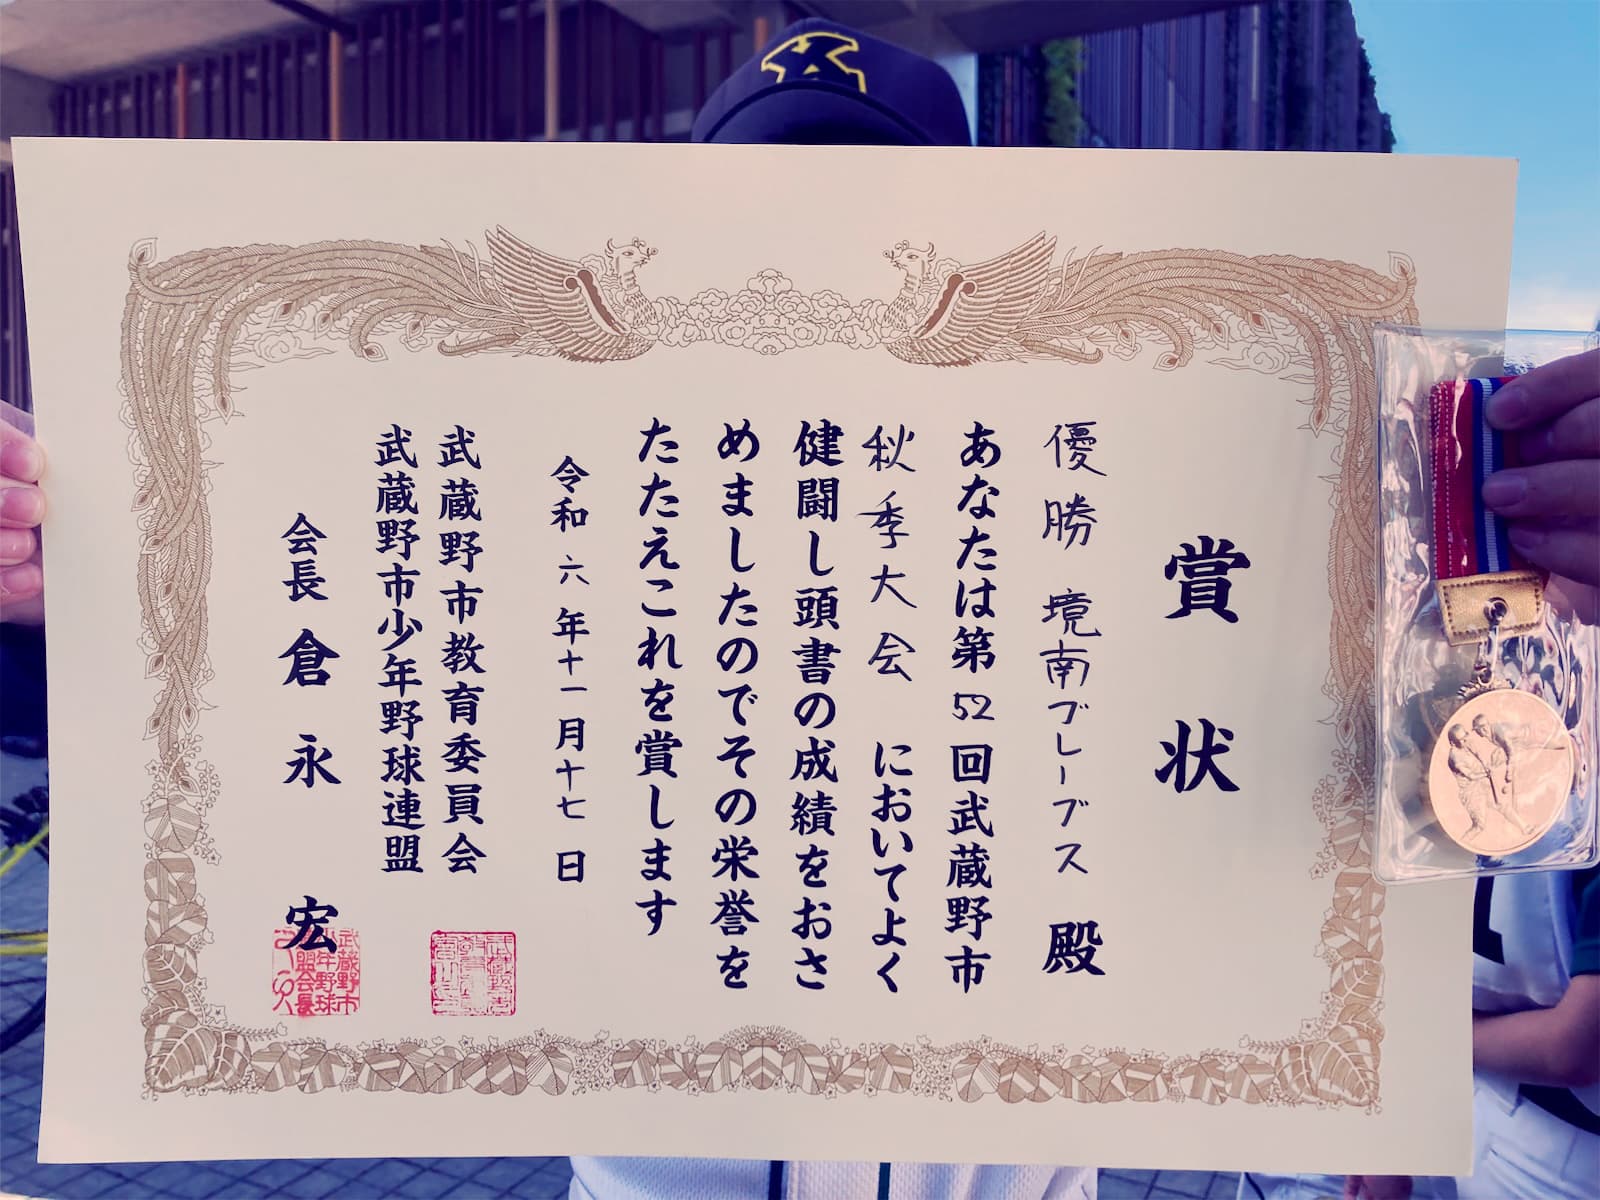 賞状
優勝 境南ブレーブス 殿
あなたは第52回武蔵野市
秋季大会 においてよく
健闘し頭書の成績をおさ
めましたのでその栄誉を
たたえこれを賞します
令和六年十一月十七日
武蔵野市教育委員会
武蔵野市少年野球連盟
会長 倉永 宏